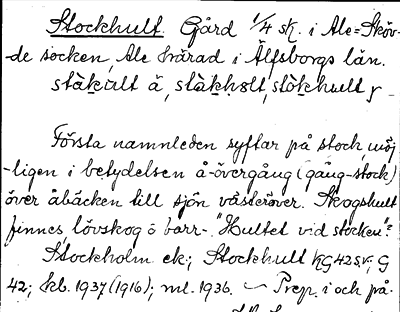 Stockhult. Gård 1/4 sk. i Ale=Sköv-
de socken, Ale härad i Älfsborgs län.
stàkult å, stàkholt, stökhult y -
Första namnleden syftar på stock, möj
-ligen i betydelsen å-övergång (gång-stock)
över åbäcken till sjön västeröver. Skogshult
finnes, lövskog o barr-. "Hultet vid stocken"?
Stockholm ek.; Stockhult G
42; kb. 1937 (1916); ml. 1936. Prep. i och på.